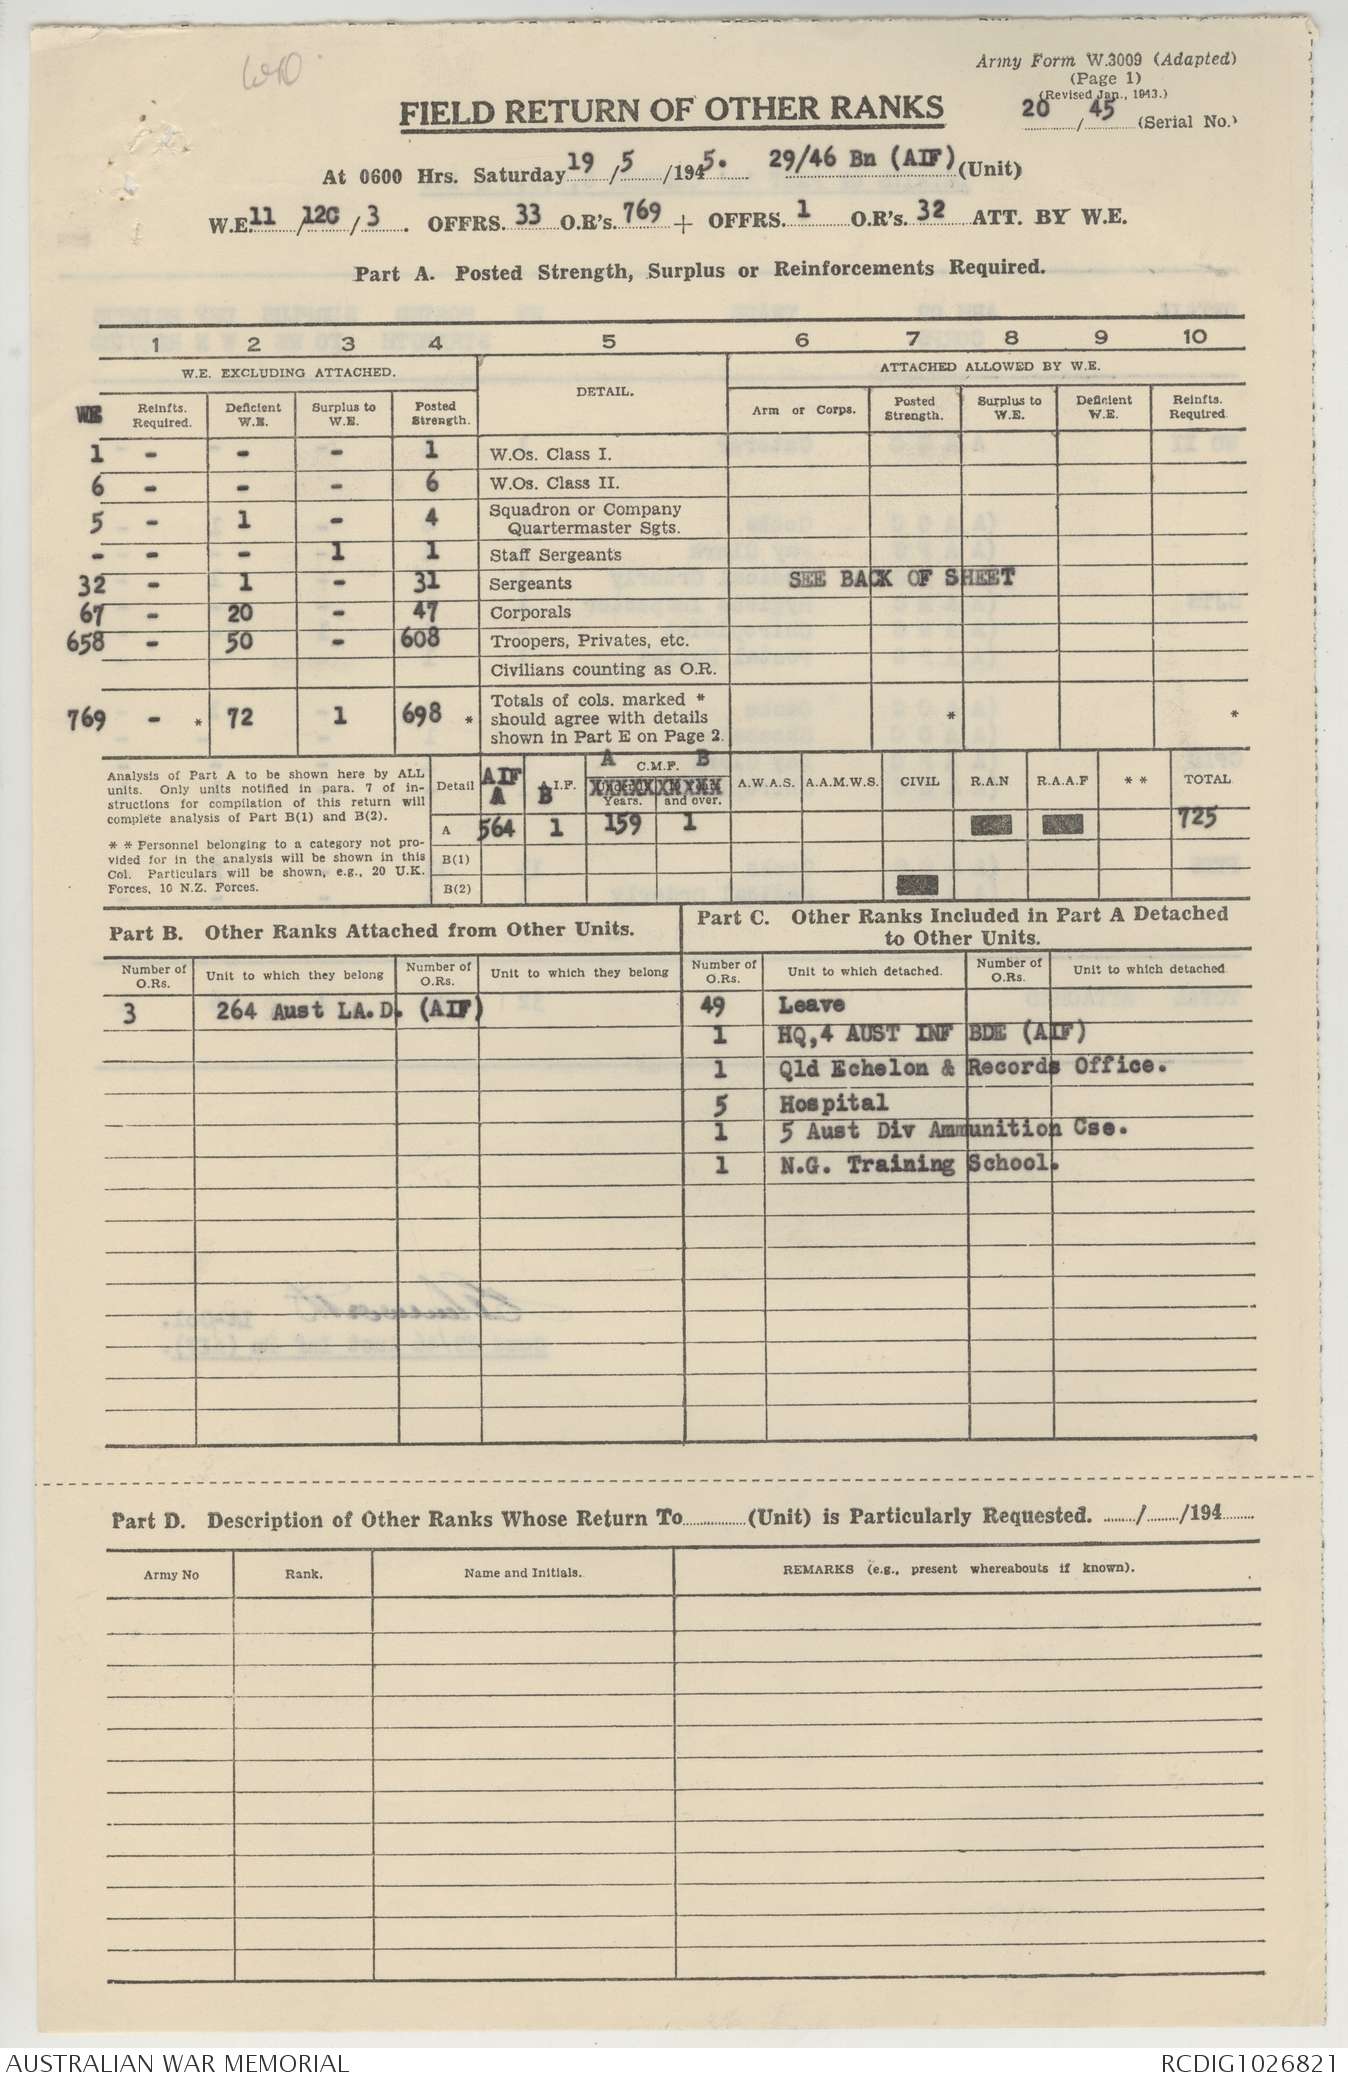 WD
Army Form W.3009 (Adapted)
(Page 1)
(Revised Jan., 1943.)
20/45 (Serial No.)
FIELD RETURN OF OTHER RANKS
At 0600 Hrs. Saturday 19/5/1945. 29/46 Bn (AIF) (Unit)
W.E. 11/12C/3. OFFRS. 33 O.R's. 769 + OFFRS. 1 O.R's. 32 ATT. BY W.E.
Part A. Posted Strength, Surplus or Reinforcements Required.
1 2 3 4 5 6 7 8 9 10
W.E. EXCLUDING ATTACHED. DETAIL. ATTACHED ALLOWED BY W.E.
WE Reinfts. Required. Deficient W.E. Surplus to W.E. Posted Strength. Arm or Corps. Posted Strength. Surplus to W.E. Deficient W.E. Reinfts. Required.
1 - - - 1 W.Os. Class I.
6 - - - 6 W.Os. Class II.
5 - 1 - 4 Squadron or Company Quartermaster Sgts.
- - - 1 1 Staff Sergeants
32 - 1 - 31 Sergeants SEE BACK OF SHEET
67 - 20 - 47 Corporals
658 - 50 - 608 Troopers, Privates, etc.
Civilians counting as O.R.
769 - * 72 1 698 * Totals of cols. marked * should agree with details shown in Part E on Page 2. * *
Analysis of Part A to be shown here by ALL
units. Only units notified in para. 7 of in-
structions for compilation of this return will
complete analysis of Part B(1) and B(2).
* * Personnel belonging to a category not pro-
vided for in the analysis will be shown in this
Col. Particulars will be shown, e.g., 20 U.K.
Forces, 10 N.Z. Forces.
Detail AIF A A.I.F. B A C.M.F. B Years. and over. A.W.A.S. A.A.M.W.S. CIVIL R.A.N R.A.A.F * * TOTAL
A 564 1 159 1 725
B(1)
B(2)
Part B. Other Ranks Attached from Other Units.
Number of O.Rs. Unit to which they belong Number of O.Rs. Unit to which they belong
3 264 Aust LA.D. (AIF)
Part C. Other Ranks Included in Part A Detached
to Other Units.
Number of O.Rs. Unit to which detached. Number of O.Rs. Unit to which detached
49 Leave
1 HQ,4 AUST INF BDE (AIF)
1 Qld Echelon & Records Office.
5 Hospital
1 5 Aust Div Ammunition Cse.
1 N.G. Training School.
Part D. Description of Other Ranks Whose Return To............(Unit) is Particularly Requested. ......../......../194........
Army No Rank. Name and Initials. REMARKS (e.g., present whereabouts if known).
AUSTRALIAN WAR MEMORIAL RCDIG1026821